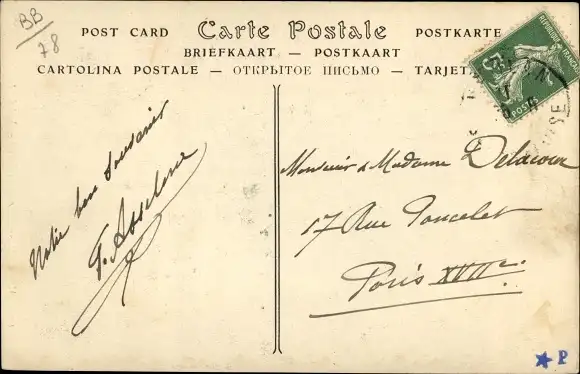 BB
78
POST CARD Carte Postale POSTKARTE
BRIEFKAART — POSTKAART
CARTOLINA POSTALE — ОТКРЫТОЕ ПИСЬМО — TARJET
REPUBLIQUE FRANÇAISE
5c
POSTES
Notre bon Souvenir
F. Asselin
Monsieur & Madame Delacour
17 Rue Poncelet
Paris XVIIe.
P